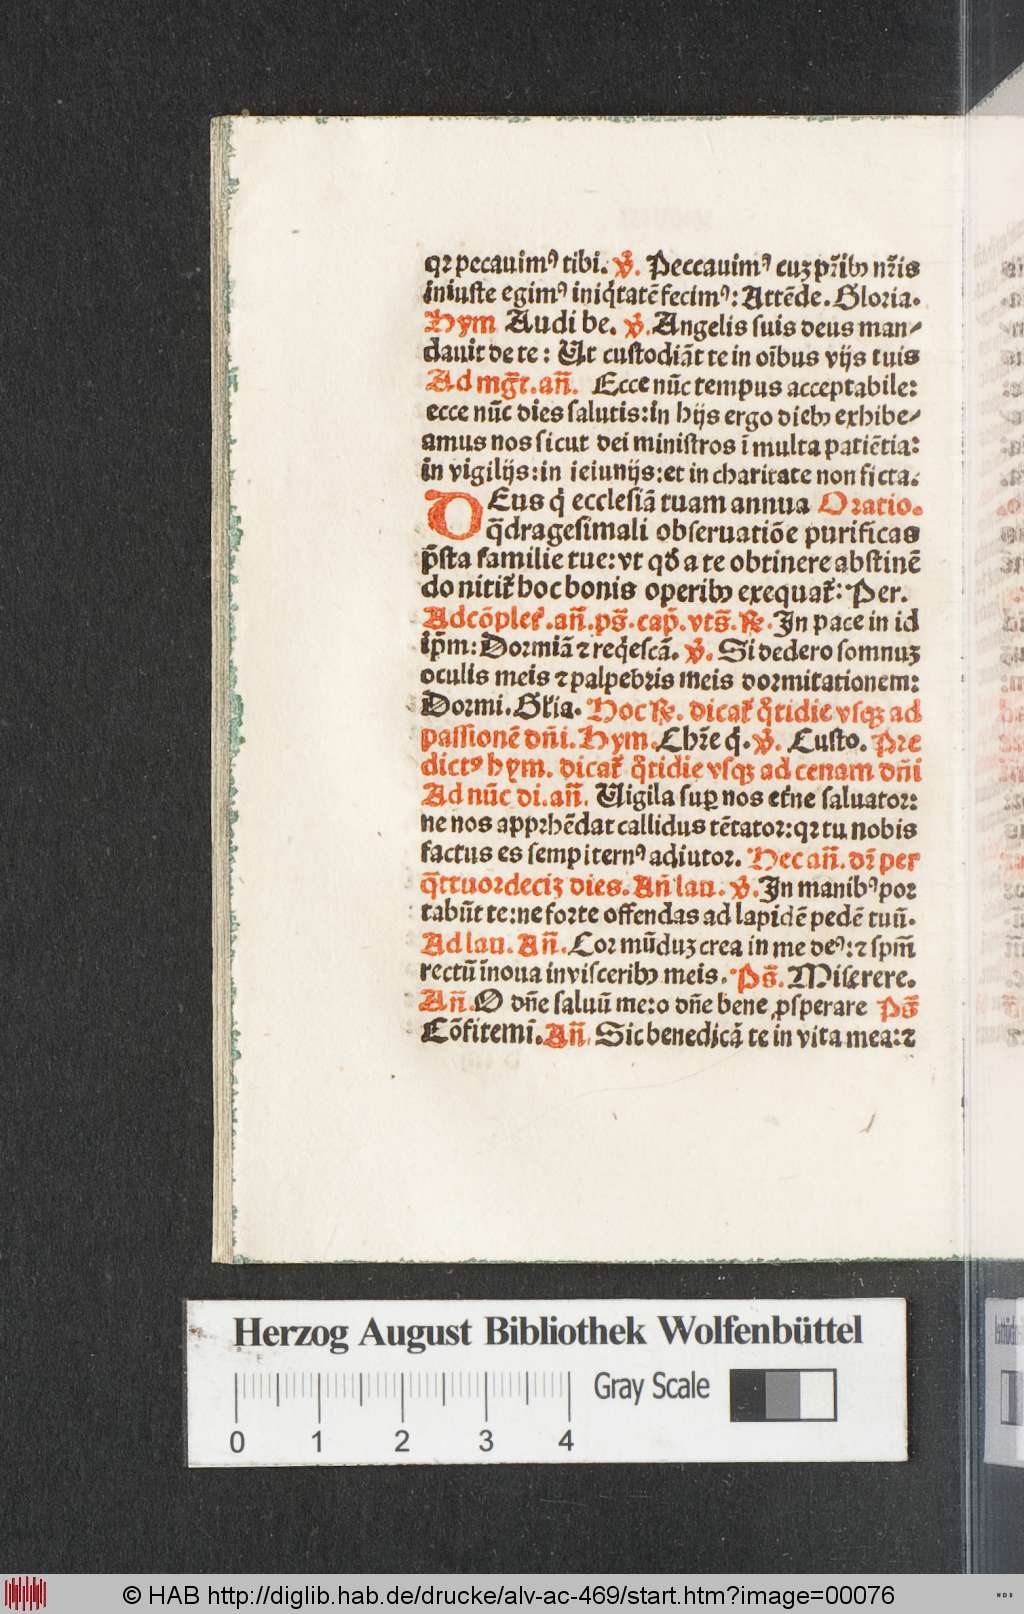 qꝛ pecauimꝰ tibi. ꝟ. Peccauimꝰ cuꝫ pr̃ibꝫ nr̃is
iniuste egimꝰ iniq̇tatē fecimꝰ: Attēde. Gloria.
Hym Audi be. ꝟ. Angelis suis deus man⸗
dauit de te: Ut custodiāt te in oībus vijs tuis
Ad mg̃t. añ. Ecce nūc tempus acceptabile:
ecce nūc dies salutis: in hijs ergo diebꝫ exhibe⸗
amus nos sicut dei ministros ī multa patiētia:
in vigilijs: in ieiunijs: et in charitate non ficta.
DEus q̇ ecclesiā tuam annua Oratio.
q̄dragesimali obseruatiōe purificas
p̄sta familie tue: vt qđ a te obtinere abstinē
do nitit᷑ hoc bonis operibꝫ exequat᷑: Per.
Ad cōplet᷑. añ. ps̄. cap̄. vts̄. ꝶ. In pace in id
ip̄m: Dormiā ⁊ req̇escā. ꝟ. Si dedero somnuꝫ
oculis meis ⁊ palpebris meis dormitationem:
Dormi. Gl̓ia. Hoc ꝶ. dicat᷑ q̊tidie vsqꝫ ad
passionē dñi. Hym. Chr̄e q̇. ꝟ. Custo. Pre
dictꝰ hym. dicat᷑ q̊tidie vsqꝫ ad cenam dñi
Ad nūc di. añ. Uigila suꝑ nos et̓ne saluator:
ne nos appꝛhēdat callidus tētator: qꝛ tu nobis
factus es sempiternꝰ adiutor. Hec añ. dr̄ per
q̄ttuordeciꝫ dies. Añ lau. ꝟ. In manibꝰ por
tabūt te: ne forte offendas ad lapidē pedē tuū.
Ad lau. Añ. Cor mūduꝫ crea in me deꝰ: ⁊ spm̄
rectū innoua in visceribꝫ meis. Ps̄. Miserere.
Añ. O dñe saluū me: o dñe bene ꝓsperare Ps̄
Cōfitemī. Añ. Sic benedicā te in vita mea: ⁊
Herzog August Bibliothek Wolfenbüttel
Gray Scale
0 1 2 3 4
© HAB http://diglib.hab.de/drucke/alv-ac-469/start.htm?image=00076